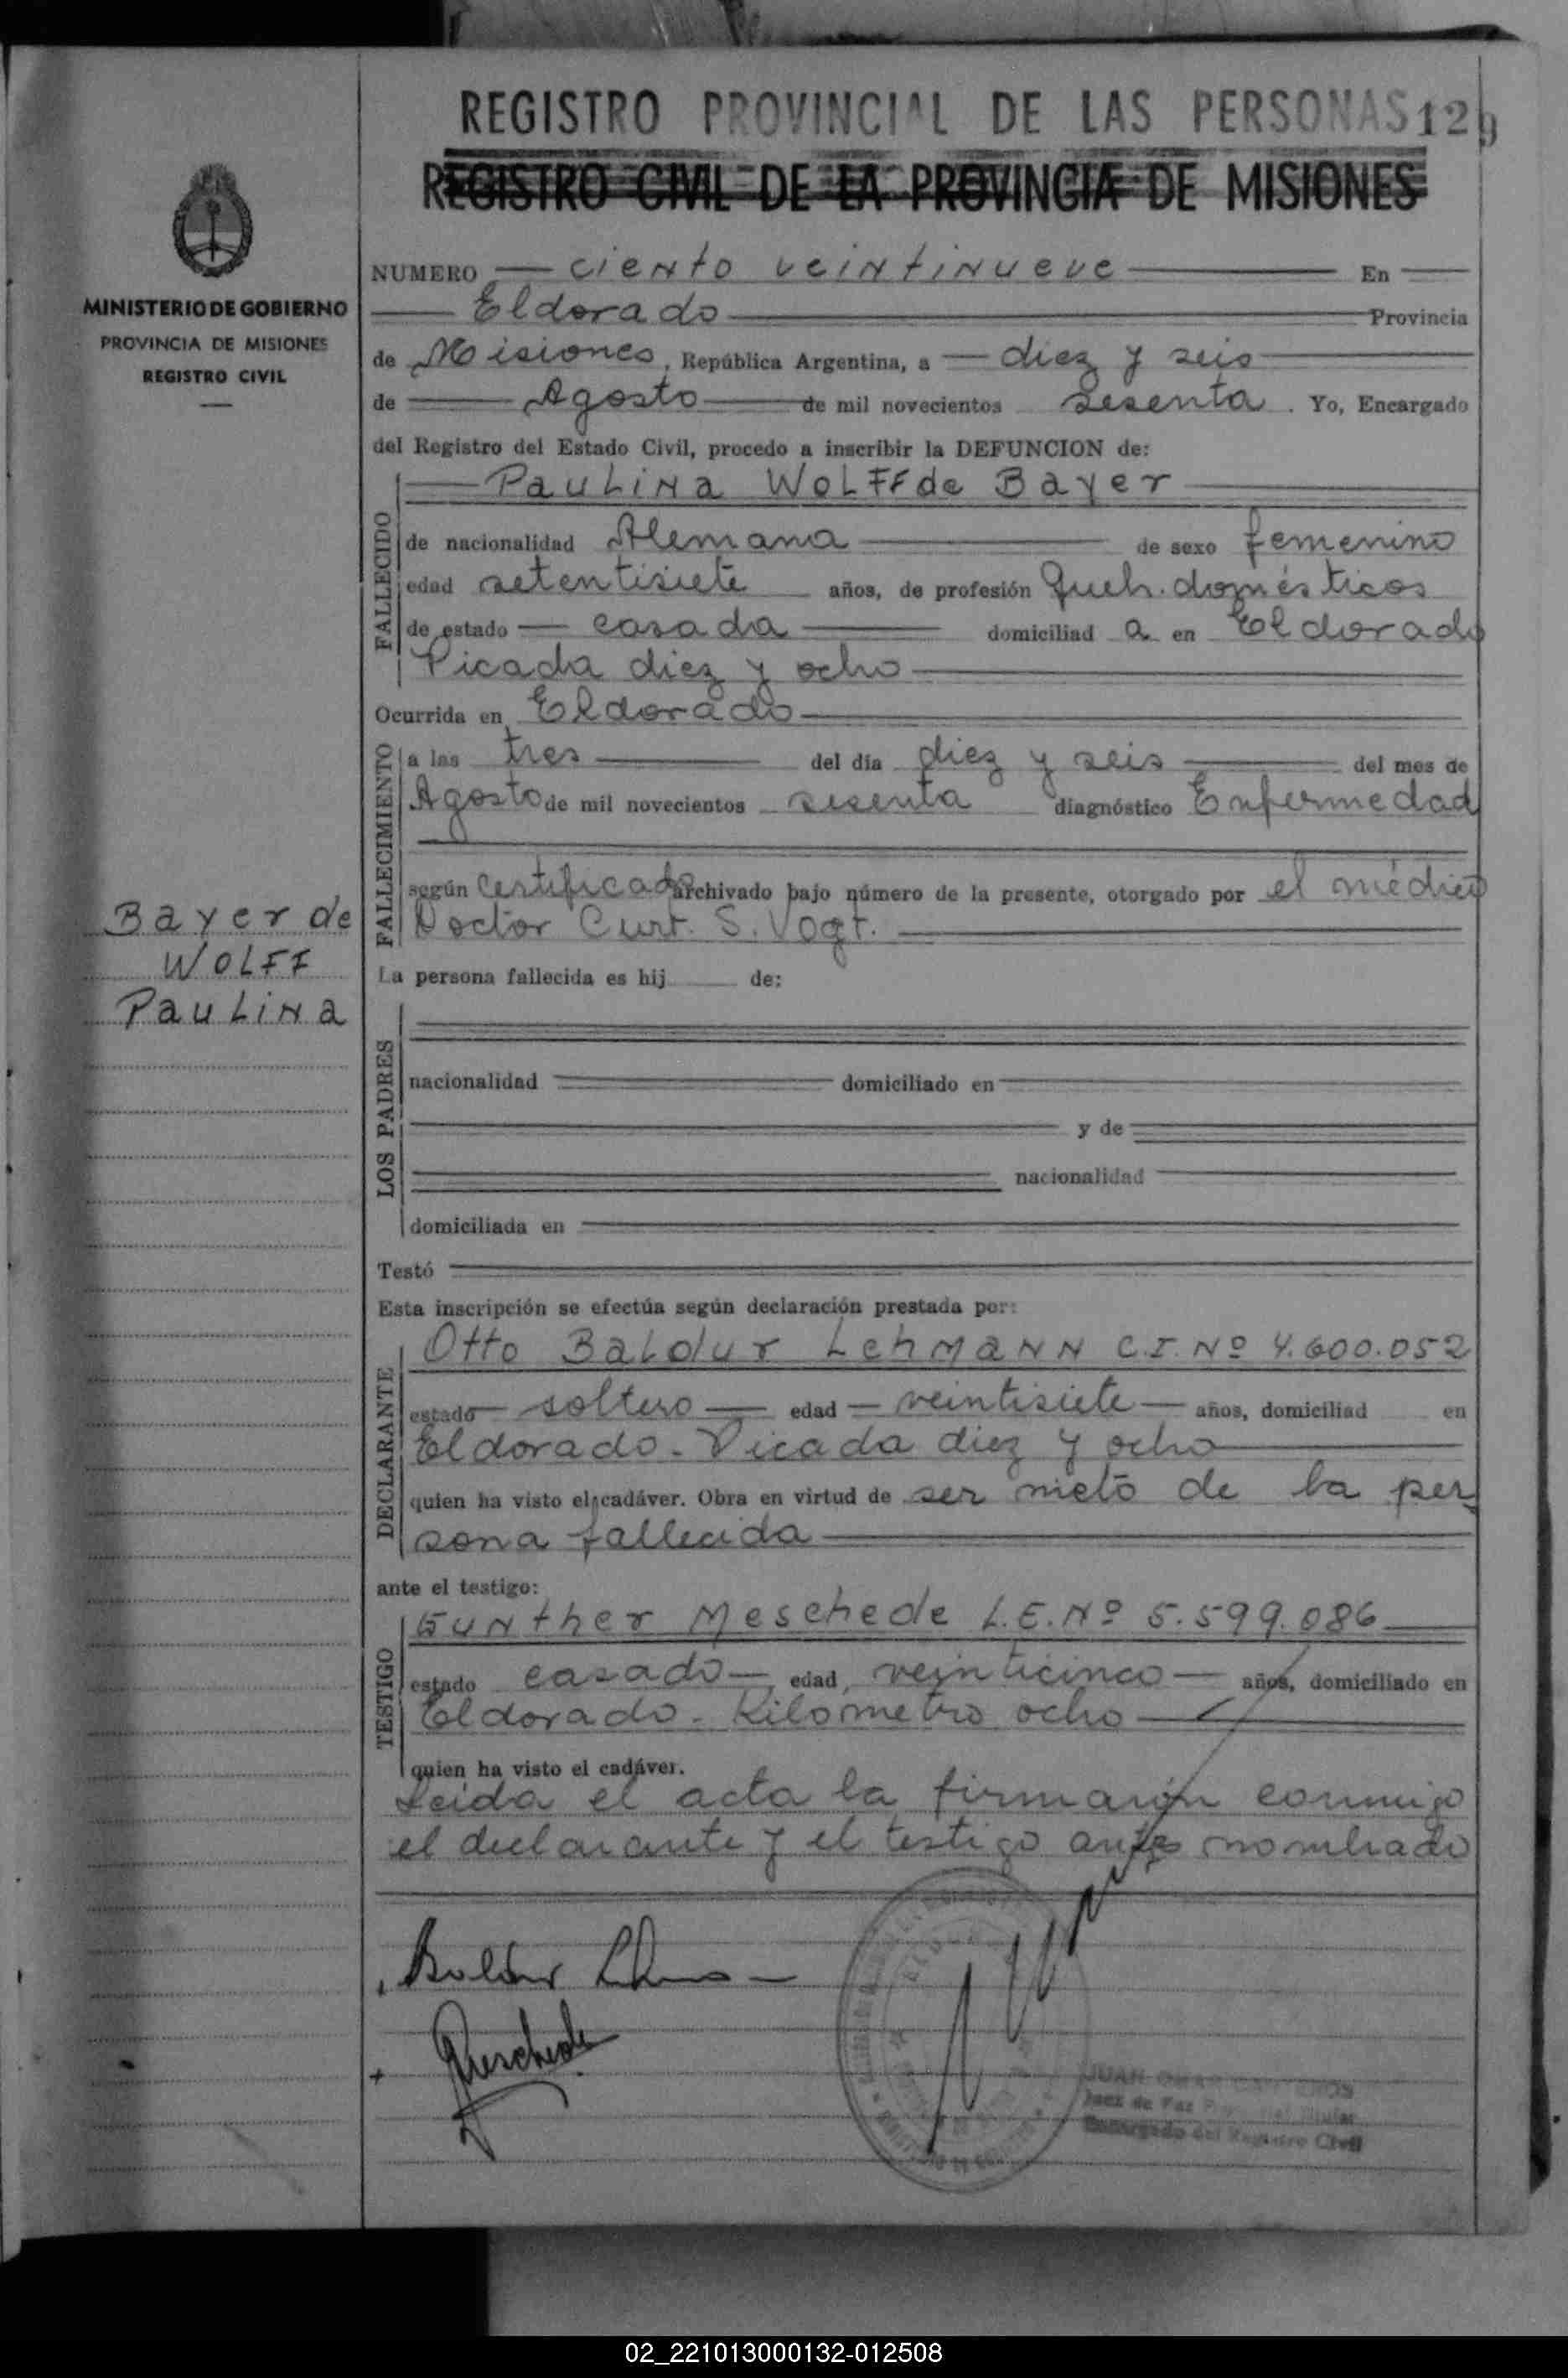 REGISTRO PROVINCIAL DE LAS PERSONAS 129
REGISTRO CIVIL DE LA PROVINCIA DE MISIONES
MINISTERIO DE GOBIERNO
PROVINCIA DE MISIONES
REGISTRO CIVIL
NUMERO ciento veintinueve En
Eldorado Provincia
de Misiones, República Argentina, a diez y seis
de Agosto de mil novecientos sesenta. Yo, Encargado
del Registro del Estado Civil, procedo a inscribir la DEFUNCION de:
FALLECIDO
Paulina Wolff de Bayer
de nacionalidad Alemana de sexo femenino
edad setentisiete años, de profesión Queh. domésticos
de estado casada domiciliad a en Eldorado
Picada diez y ocho
Ocurrida en Eldorado
FALLECIMIENTO
a las tres del día diez y seis del mes de
Agosto de mil novecientos sesenta diagnóstico Enfermedad
según certificado archivado bajo número de la presente, otorgado por el médico
Doctor Curt. S. Vogt.
Bayer de
Wolff
Paulina
La persona fallecida es hij de:
LOS PADRES
nacionalidad domiciliado en
y de
nacionalidad
domiciliada en
Testó
Esta inscripción se efectúa según declaración prestada por:
DECLARANTE
Otto Baldur Lehmann C.I. Nº 4.600.052
estado soltero edad veintisiete años, domiciliad en
Eldorado - Picada diez y ocho
quien ha visto el cadáver. Obra en virtud de ser nieto de la per
sona fallecida
ante el testigo:
TESTIGO
Gunther Meschede L.E. Nº 5.599.086
estado casado edad, veinticinco años, domiciliado en
Eldorado - Kilometro ocho
quien ha visto el cadáver.
Leida el acta la firmaron conmigo
el declarante y el testigo antes nombrado
Meschede
JUAN OMAR
Juez de Paz
Encargado del Registro Civil
02_221013000132-012508